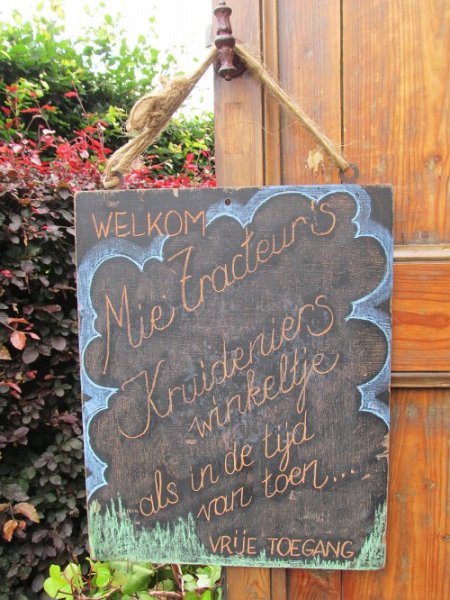 WELKOM
Mie Tracteur's
Kruideniers
winkeltje
als in de tijd
van toen...
VRIJE TOEGANG